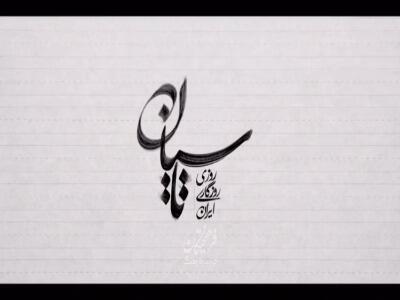 تاسیان
روزی
روزگاری
ایران